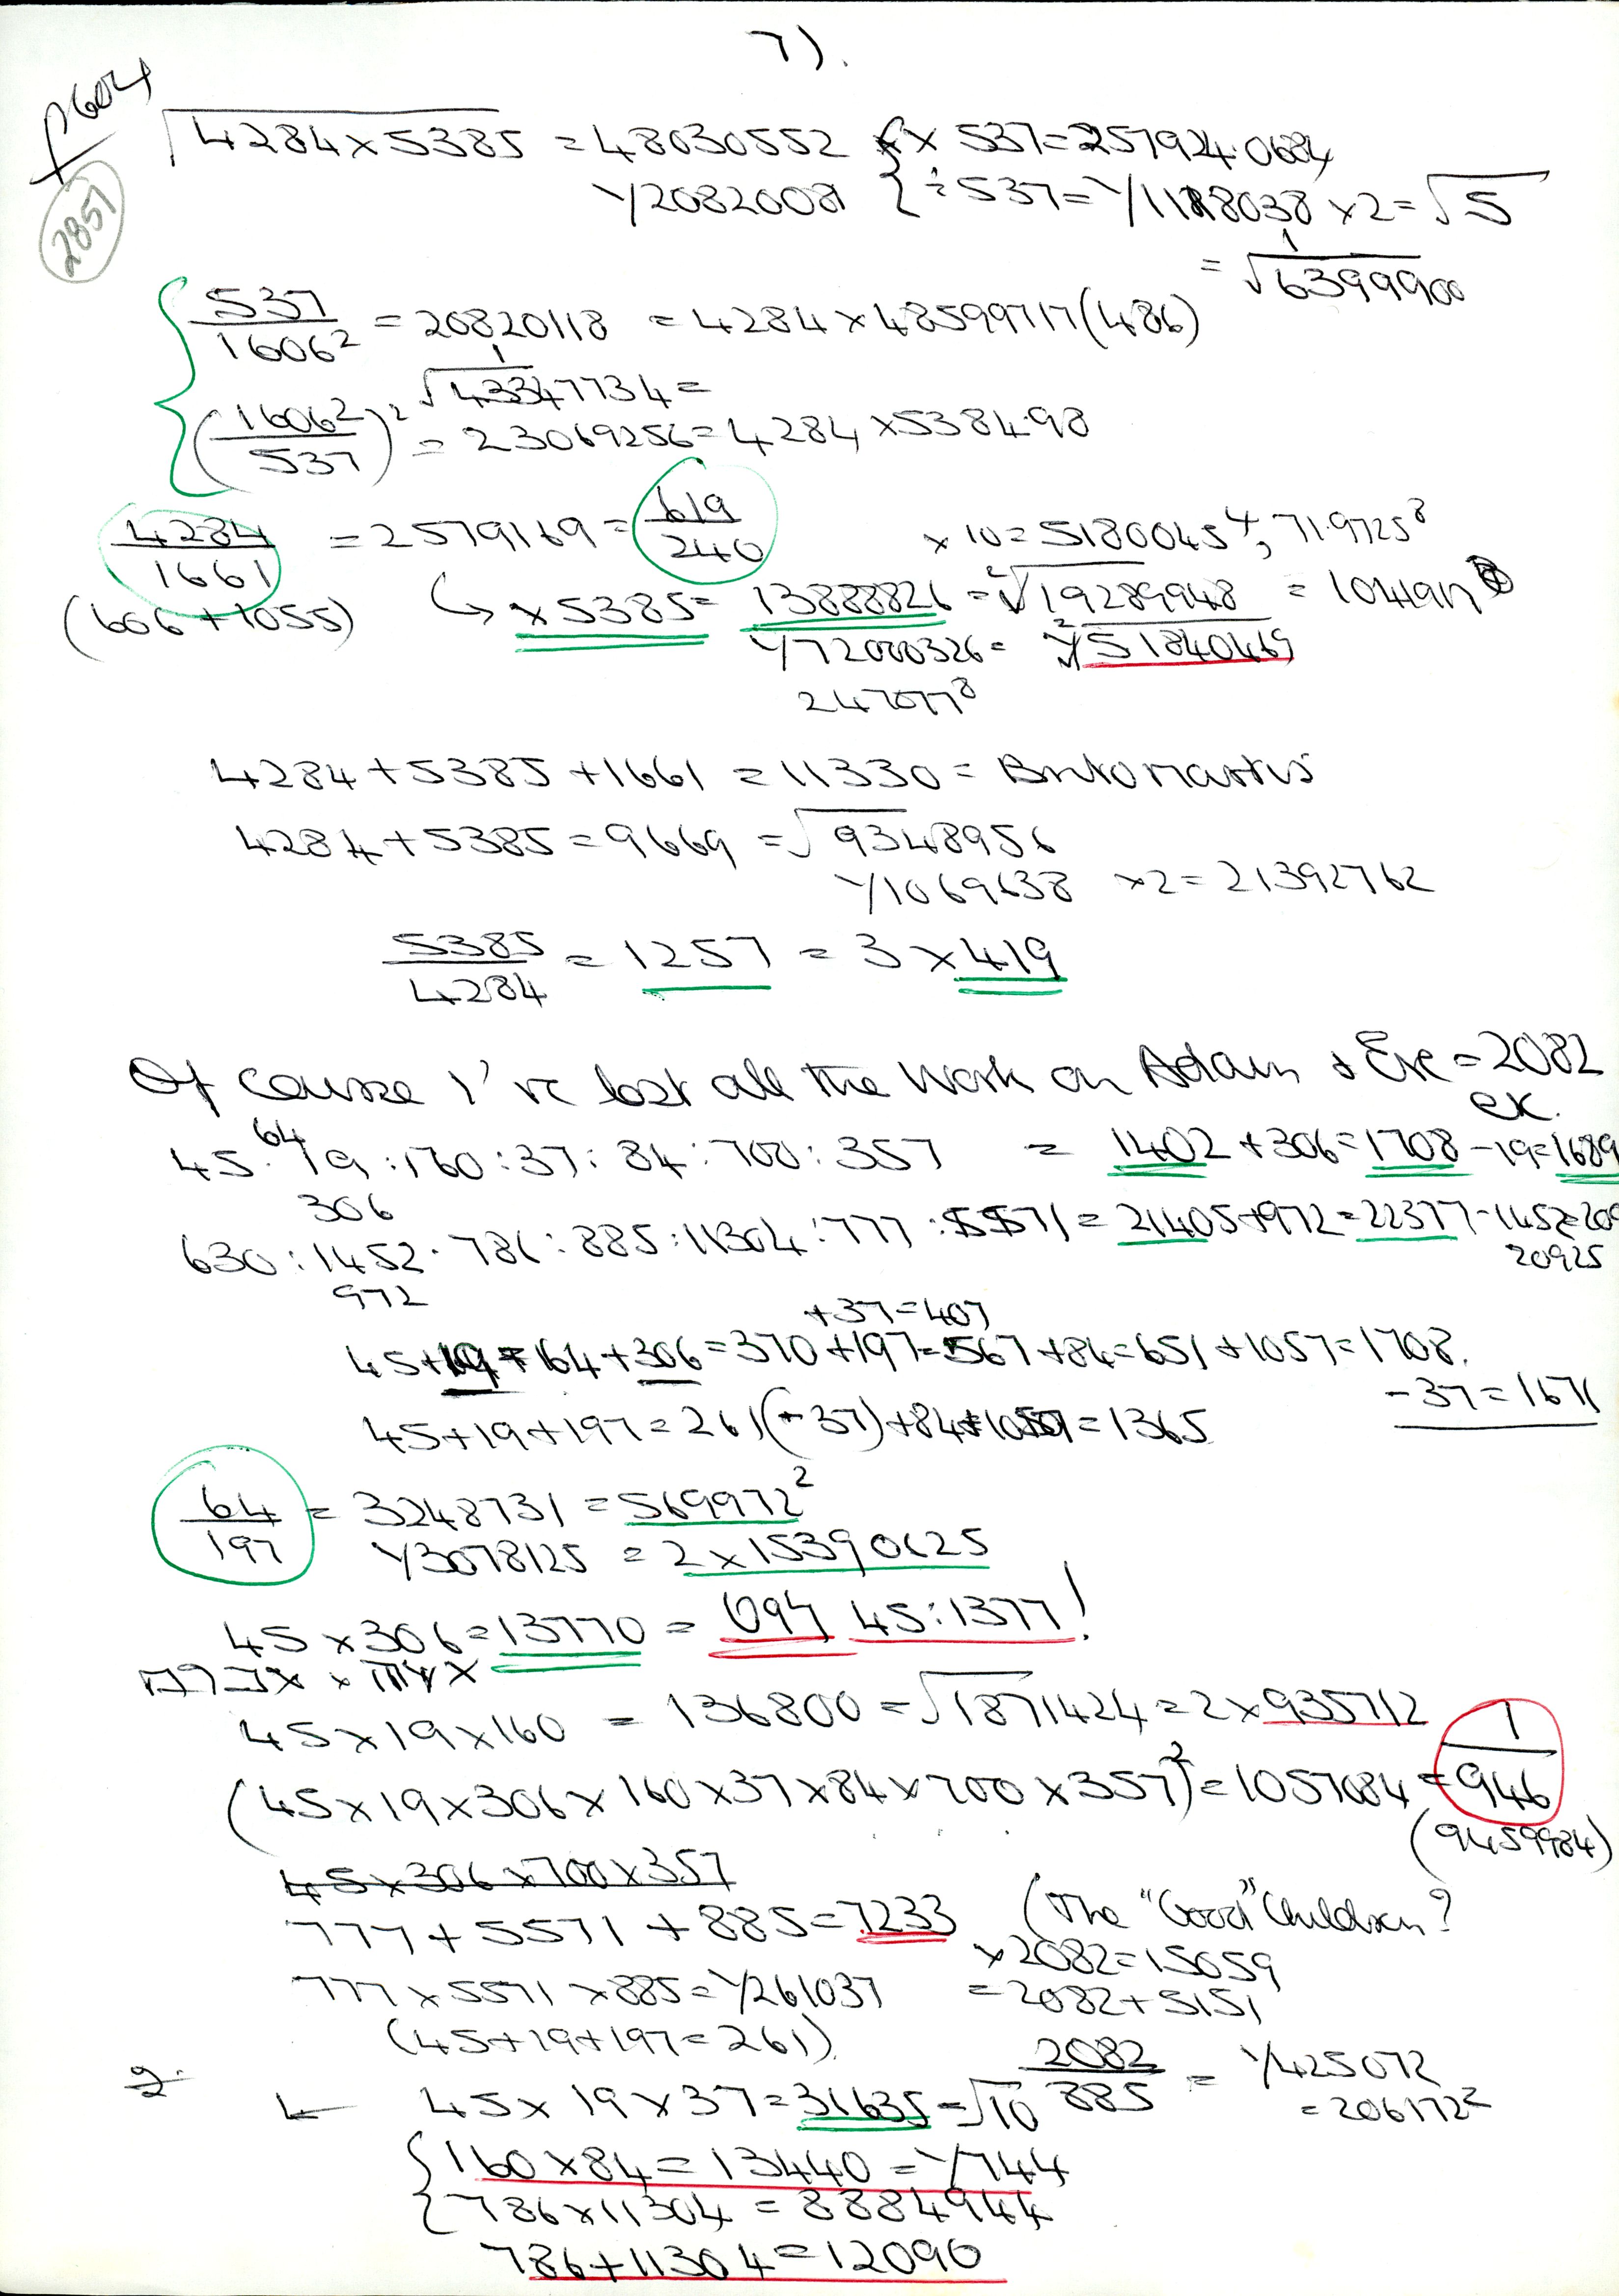 7).
f604
2851
√4284×5385 = 48030552 { × 537=257924.0684
Y2082008 { ÷537= Y1118038 ×2=√5
= 1/√6399900
537/16062 = 20820118 = 4284×48599717(486)
1/√43347734 =
(16062/537)2 = 23069256=4284×5384.98
4284/1661 = 2579169 = 619/240 ×10=51800454; 71.97258
(606+1055) ↳ ×5385= 13888826 = 2√19289948
Y72000326= 51840469
2470778
4284+5385+1661 =11330= Britomartis
4284+5385=9669 =√9348956
Y1069638 ×2=21392762
5385/4284 = 1257 = 3×419
Of course I've lost all the work on Adam & Eve=2082
ex.
45:19:160:37:84:700:357 = 1402+306=1708-19=1689
64
306
630:1452:786:885:11304:777:5571=21405+972=22377-1452=209
20925
972
+37=407
45+19=64+306=370+197=567+84=651+1057=1708.
-37=1671
45+19+197=261(+37)+84+1057=1365
64/197 = 3248731 = 5699722
Y3078125 = 2×15390625
45×306=13770 = 45:1377!
אדם × חוה
45×19×160 = 136800=√1871424=2×935712
(45×19×306×160×37×84×700×357)2=1057084=1/946
(9459984)
45×306×700×357
777+5571+885=7233 (The "Good" Children?
×2082=15059
777×5571×885=Y261037 =2082+5151
(45+19+197=261)
2082/885 = Y425072
=2061722
2.
45×19×37=31635=√10
{160×84=13440=Y744
{786×11304=8884944
786+11304=12090